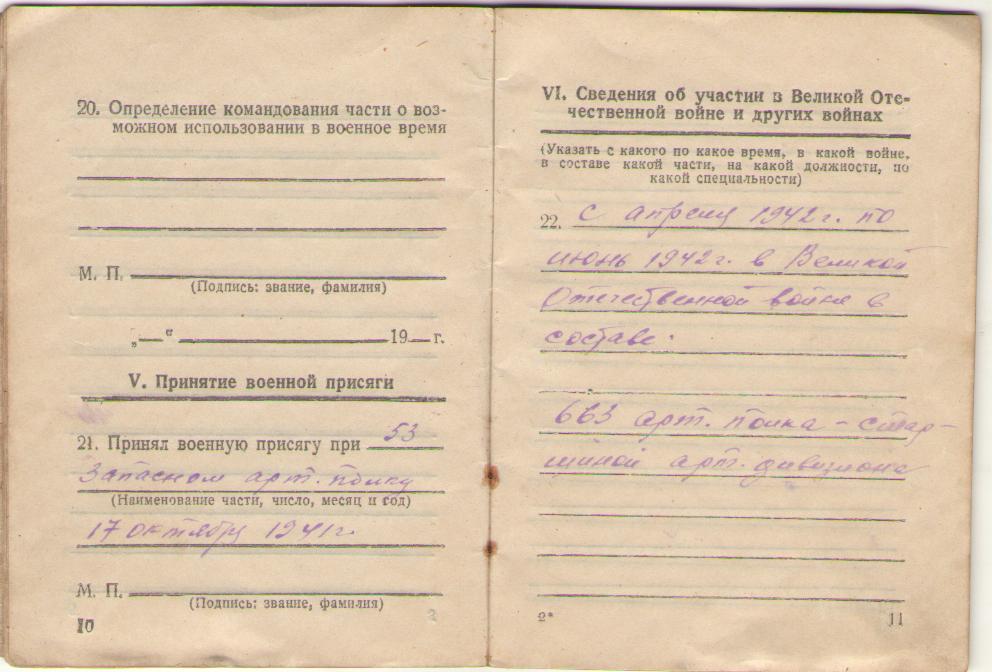 20. Определение командования части о воз-
можном использовании в военное время
М. П.
(Подпись: звание, фамилия)
„ — “ 19 — г.
V. Принятие военной присяги
21. Принял военную присягу при 53
Запасном арт. полку
(Наименование части, число, месяц и год)
17 октября 1941г.
М. П.
(Подпись: звание, фамилия)
10
3
VI. Сведения об участии в Великой Оте-
чественной войне и других войнах
(Указать с какого по какое время, в какой войне,
в составе какой части, на какой должности, по
какой специальности)
22. С апреля 1942г. по
июнь 1942г. в Великой
Отечественной войне в
составе.
663 арт. полка - стар-
шиной арт. дивизиона
2*
11